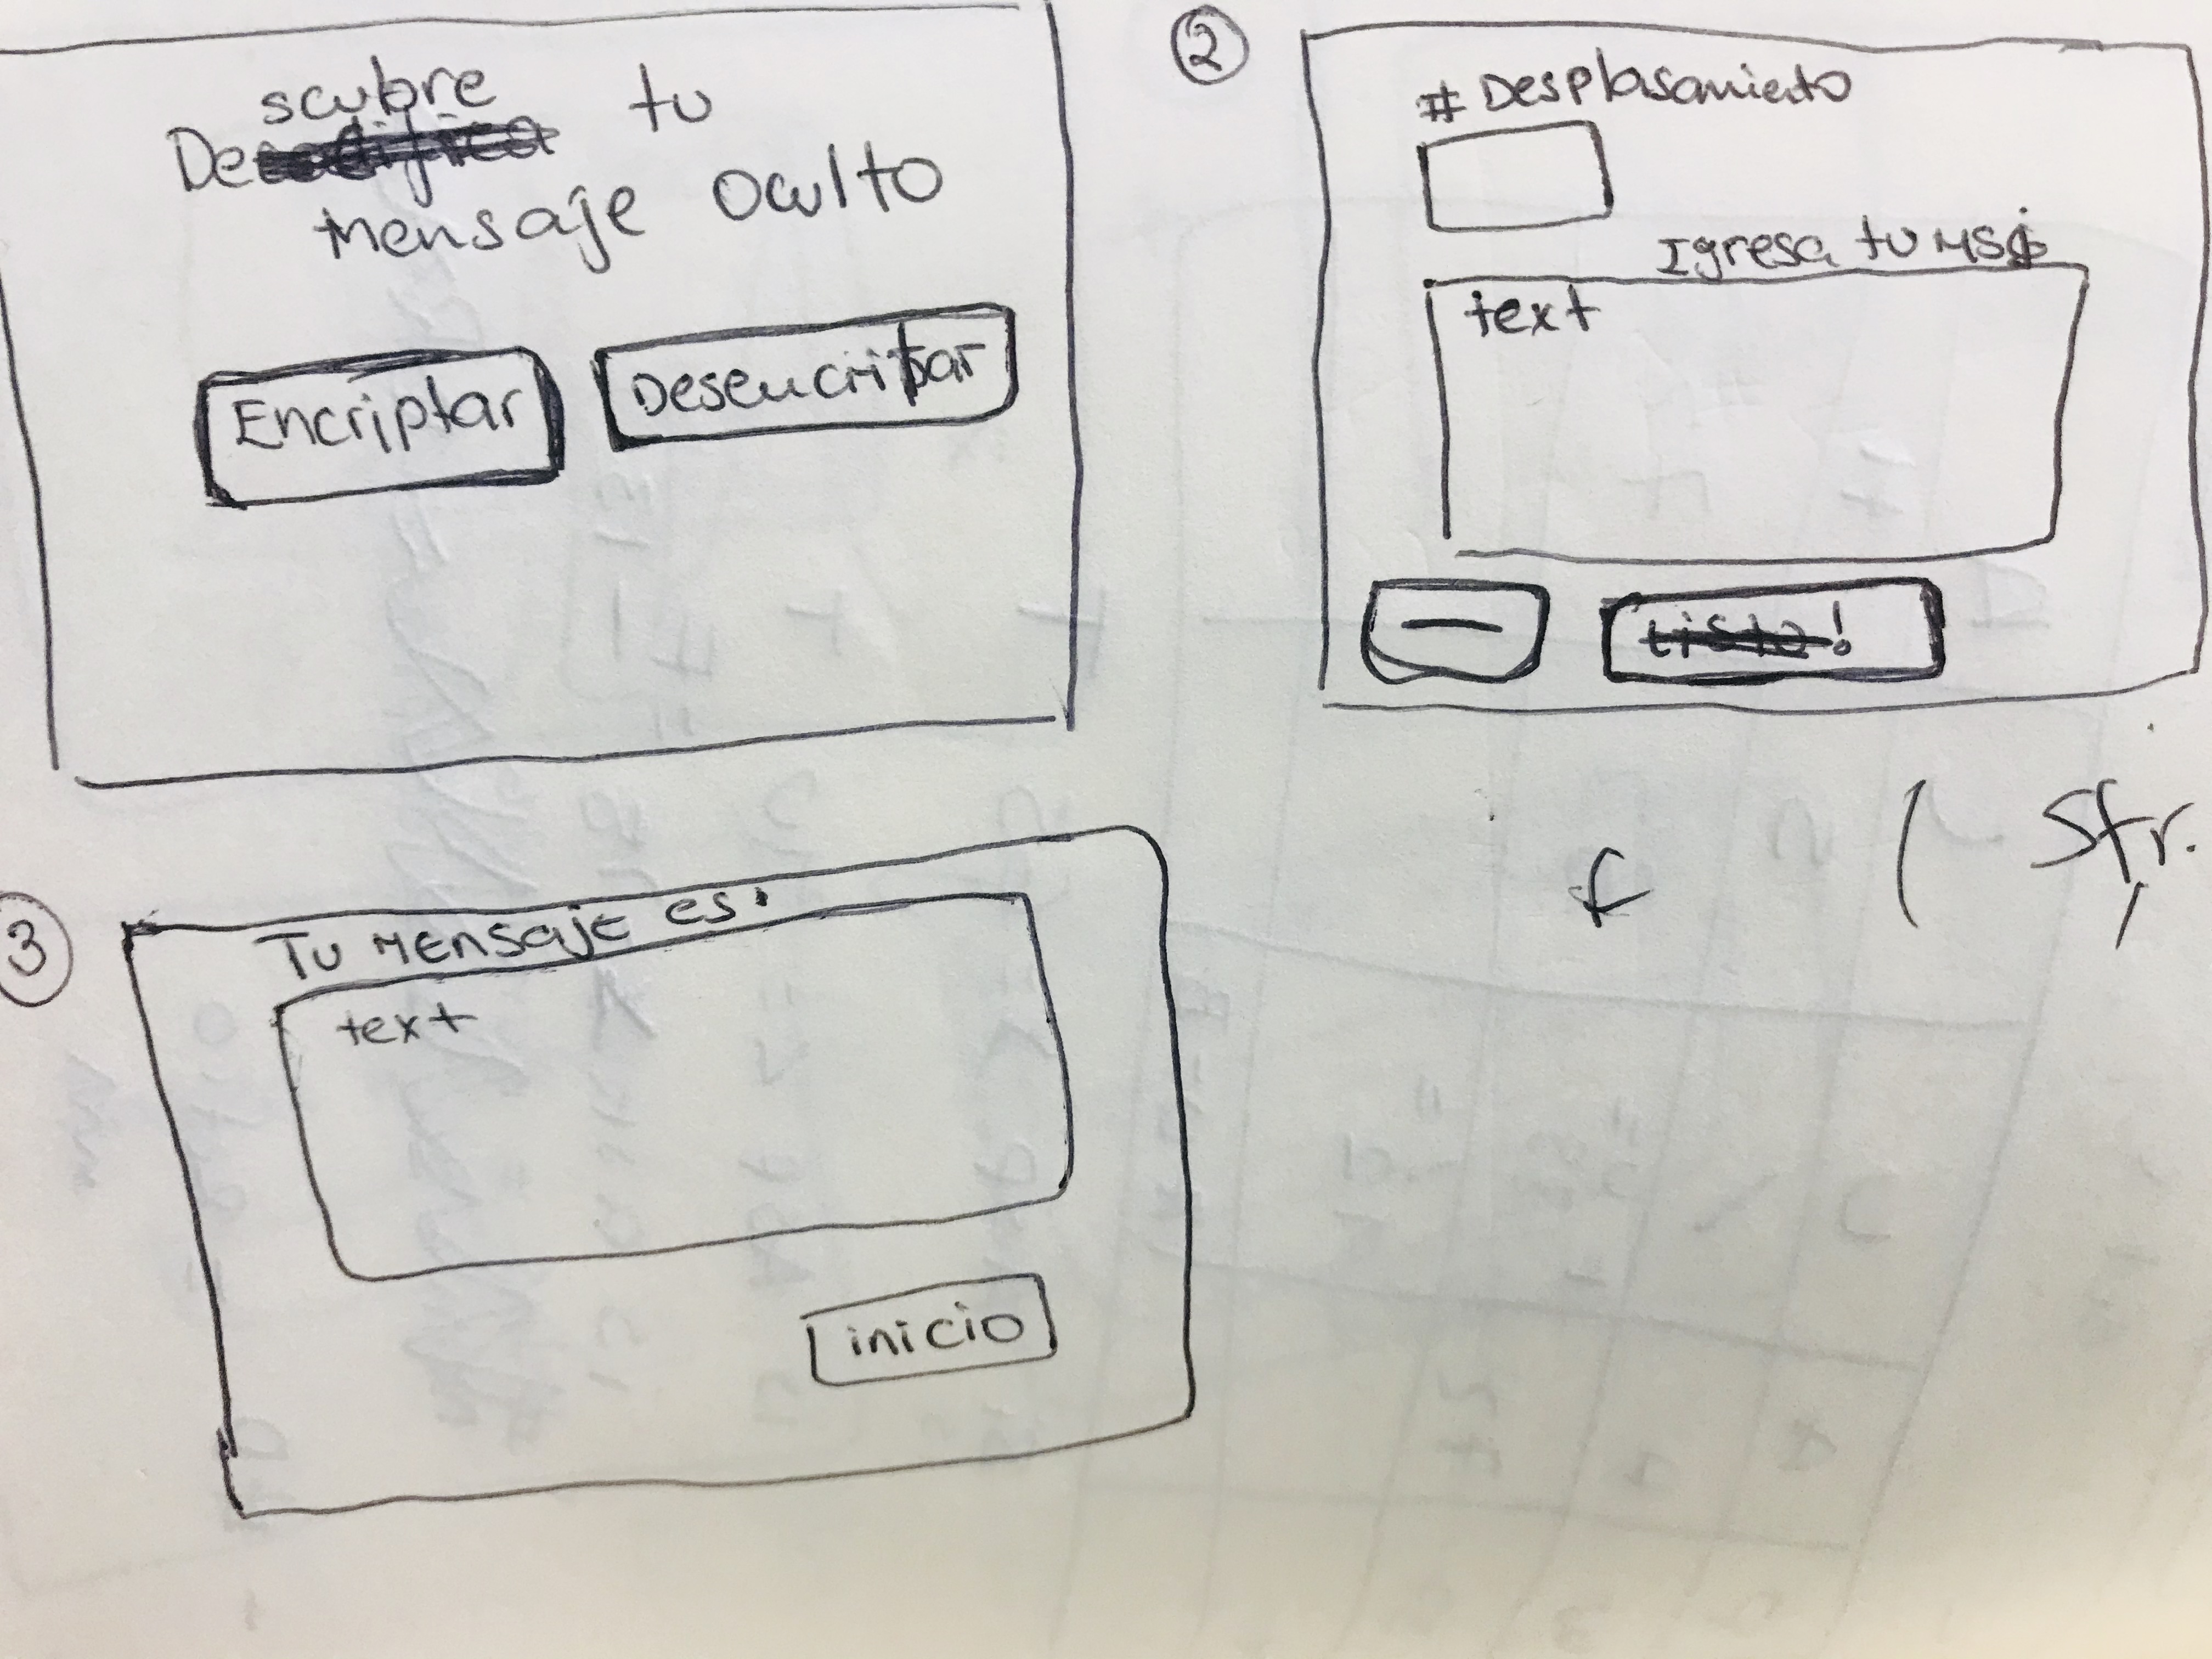 Descubre tu
mensaje oculto
Encriptar
Desencriptar
2
# Desplasamiento
Igresa tu MSj
text
Listo!
Sfr.
3
Tu mensaje es:
text
inicio